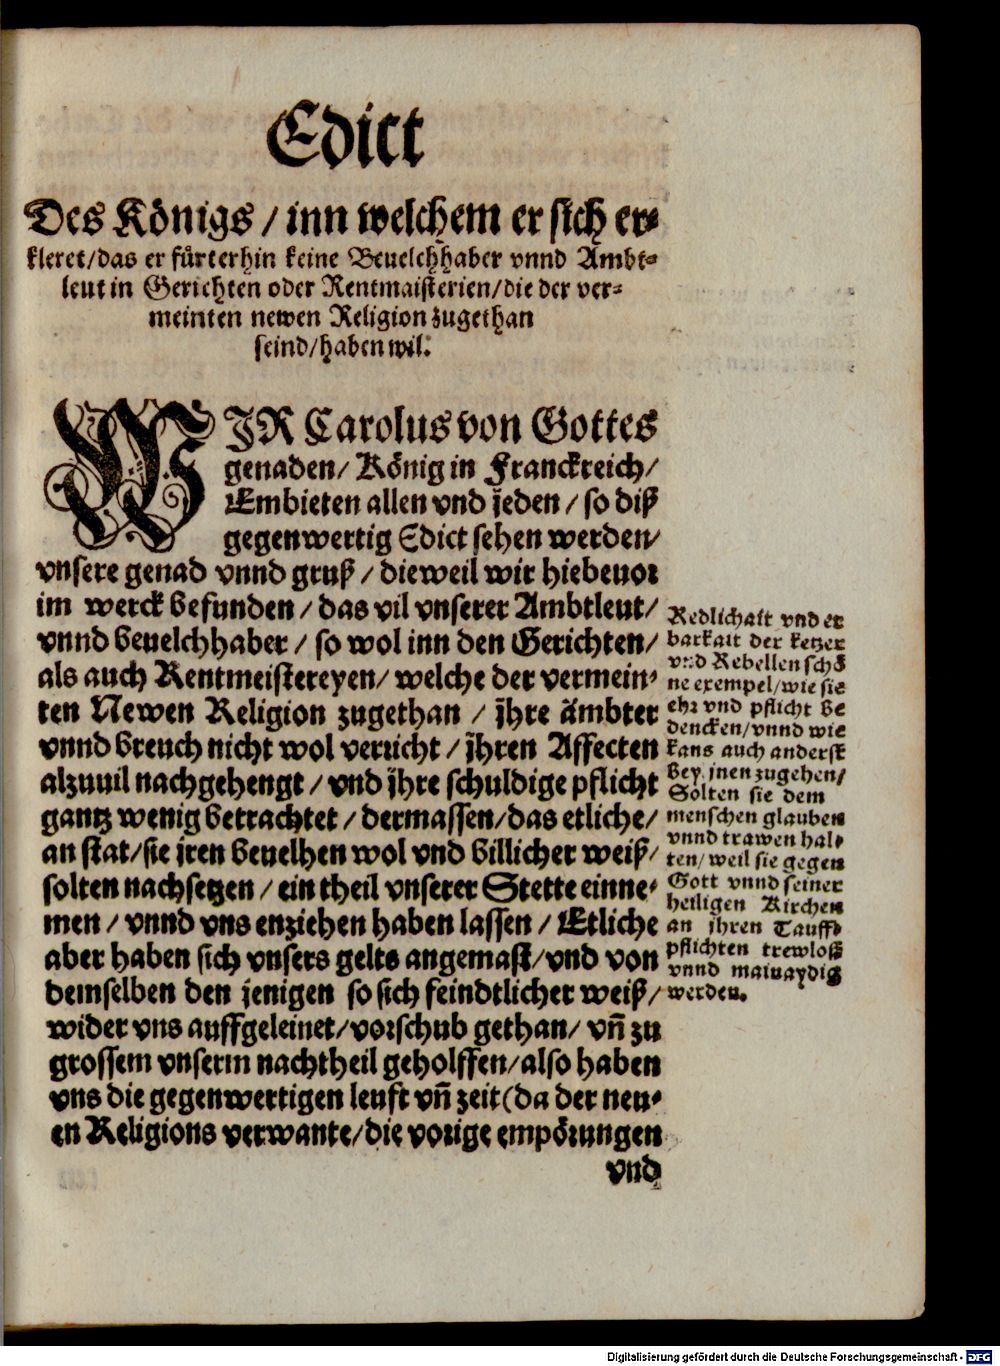 Edict
Des Königs / inn welchem er sich er-
kleret/das er fürterhin keine Beuelchhaber vnnd Ambt-
leut in Gerichten oder Rentmaisterien/die der ver-
meinten newen Religion zugethan
seind/haben wil.
WIR Carolus von Gottes
genaden/ König in Franckreich/
Embieten allen vnd jeden / so diß
gegenwertig Edict sehen werden/
vnsere genad vnnd gruß / dieweil wir hiebeuor
im werck befunden / das vil vnserer Ambtleut/
vnnd beuelchhaber / so wol inn den Gerichten/
als auch Rentmeistereyen/ welche der vermein-
ten Newen Religion zugethan / jhre ämbter
vnnd breuch nicht wol verricht / jhren Affecten
alzuuil nachgehengt / vnd jhre schuldige pflicht
gantz wenig betrachtet / dermassen/das etliche/
an stat/sie jren beuelhen wol vnd billicher weiß/
solten nachsetzen / ein theil vnserer Stette einne-
men / vnnd vns enziehen haben lassen / Etliche
aber haben sich vnsers gelts angemast/vnd von
demselben den jenigen so sich feindtlicher weiß/
wider vns auffgeleinet/vorschub gethan/ vn̄ zu
grossem vnserm nachtheil geholffen/also haben
vns die gegenwertigen leuft vn̄ zeit(da der neu-
en Religions verwante/die vorige empörungen
vnd
Redlichait vnd er
barkait der ketzer
vnd Rebellen schö
ne exempel/wie sie
ehr vnd pflicht be
dencken/vnnd wie
kans auch anderst
bey jnen zugehen/
Solten sie dem
menschen glauben
vnnd trawen hal-
ten/weil sie gegen
Gott vnnd seiner
heiligen Kirchen
an jhren Tauff-
pflichten trewloß
vnnd mainaydig
werden.
Digitalisierung gefördert durch die Deutsche Forschungsgemeinschaft - DFG